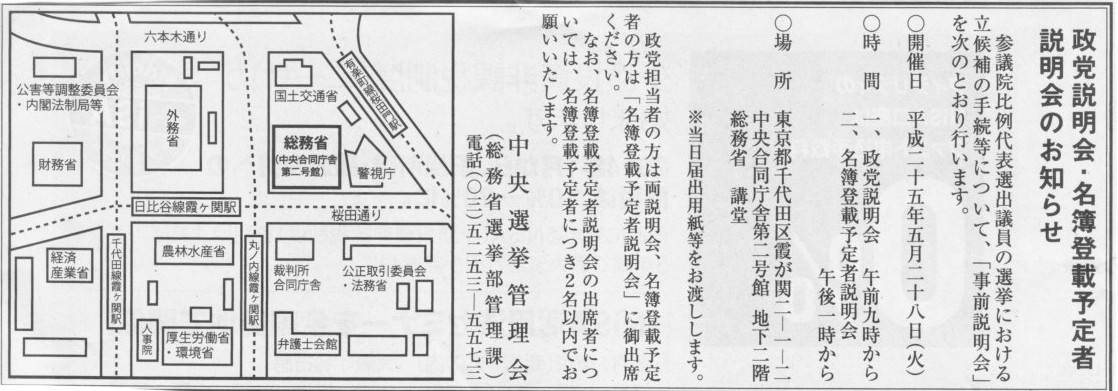 政党説明会・名簿登載予定者
説明会のお知らせ
参議院比例代表選出議員の選挙における
立候補の手続等について、「事前説明会」
を次のとおり行います。
〇開催日　平成二十五年五月二十八日（火）
〇時　間　一、政党説明会　午前九時から
二、名簿登載予定者説明会
午後一時から
〇場　所　東京都千代田区霞が関二―一―二
中央合同庁舎第二号館　地下二階
総務省　講堂
※当日届出用紙等をお渡しします。
政党担当者の方は両説明会、名簿登載予定
者の方は「名簿登載予定者説明会」に御出席
ください。
なお、名簿登載予定者説明会の出席者につ
いては、名簿登載予定者につき2名以内でお
願いいたします。
中央選挙管理会
（総務省選挙部管理課）
電話（〇三）五二五三―五五七三
六本木通り
公害等調整委員会
・内閣法制局等
財務省
外務省
国土交通省
有楽町線桜田門駅
総務省
（中央合同庁舎
第二号館）
警視庁
日比谷線霞ヶ関駅
桜田通り
経済
産業省
千代田線霞ヶ関駅
農林水産省
丸ノ内線霞ヶ関駅
裁判所
合同庁舎
公正取引委員会
・法務省
人事院
厚生労働省
・環境省
弁護士会館